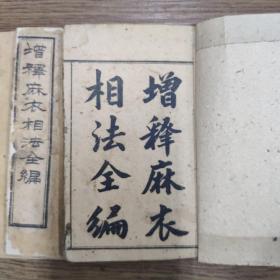 增釋麻衣相法全編
增釋麻衣
相法全編